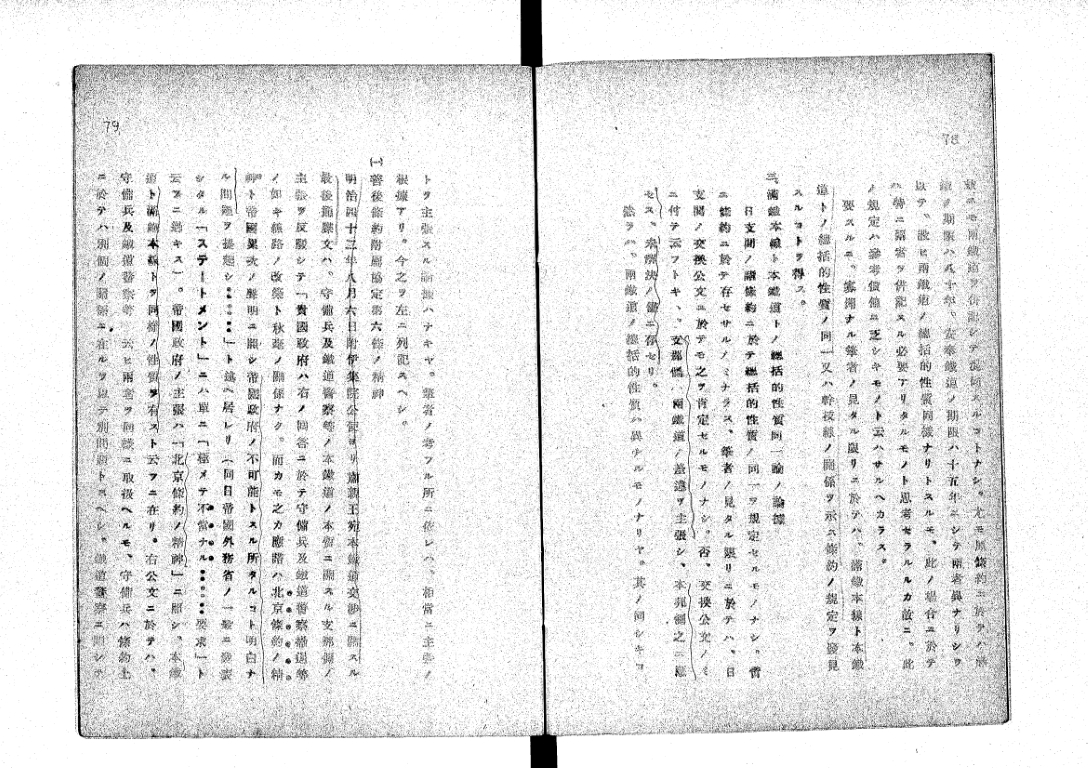 78
敍ニモ兩鐵道ヲ併記シテ規定スルコトナシ。尤モ原條約ニ於テハ
鐵ノ期限ハ八十年、安奉鐵道ノ期限ハ十五年ニシテ兩者異ナリシヲ
以テ、假ヒ兩鐵道ノ總括的性質同樣ナリトスルモ、此ノ場合ニ於テ
ハ特ニ兩者ヲ併記スル必要アリタルモノト思考セラルルカ故ニ、此
ノ規定ハ參考價値ニ乏シキモノト云ハサルヘカラス。
要スルニ、寡聞ナル筆者ノ見タル限リニ於テハ、滿鐵本線ト本鐵
道トノ總括的性質ノ同一又ハ幹枝線ノ關係ヲ示ス條約ノ規定ヲ發見
スルコトヲ得ス。
三、滿鐵本線ト本鐵道トノ總括的性質同一論ノ論據
日支間ノ諸條約ニ於テ總括的性質ノ同一ヲ規定セルモノナシ。啻
ニ條約ニ於テ存セサルノミナラス、筆者ノ見タル限リニ於テハ、日
支間ノ交換公文ニ於テモ之ヲ肯定セルモノナシ。否、交換公文ノミ
ニ付テ云フトキハ、支那側ハ兩鐵道ノ差違ヲ主張シ、本邦側之ニ應
セス、未解決ノ儘ニ存セリ。
然ラハ、兩鐵道ノ總括的性質ハ異ナルモノナリヤ。其ノ同シキコ
79
トヲ主張スル論據ハナキヤ。筆者ノ考フル所ニ依レハ、相當ニ主張ノ
根據アリ。今之ヲ左ニ列記スヘシ。
(一)善後條約附屬協定第六條ノ精神
明治四十二年八月六日附伊集院公使ヨリ肅親王宛本鐵道交渉ニ關スル
最後通牒文ハ、守備兵及鐵道警察等ノ本鐵道ノ本質ニ關スル支那側ノ
主張ヲ反駁シテ「貴國政府ハ右ノ回答ニ於テ守備兵及鐵道警察撤退等
ノ如キ線路ノ改築ト秋毫ノ關係ナク。而カモ之カ應諾ハ北京條約ノ精
神ト帝國累次ノ聲明ニ關シ帝國政府ノ不可能トスル所タルコト明白ナ
ル問題ヲ提起シ・・・・・・」ト述ヘ居レリ(同日帝國外務省ノ一般ニ發表
シタル「ステートメント」ニハ單ニ「極メテ不當ナル・・・・・・要求」ト
云フニ過キス)。帝國政府ノ主張ハ「北京條約ノ精神」ニ照シ、本鐵
道ト滿鐵本線トヲ同樣ノ性質ヲ有スト云フニ在リ。右公文ニ於テハ、
守備兵及鐵道警察等ト云ヒ兩者ヲ同樣ニ取扱ヘルモ、守備兵ハ條約上
ニ於テハ別個ノ關係ニ在ルヲ以テ別問題トスヘシ。鐵道警察ニ關シテ